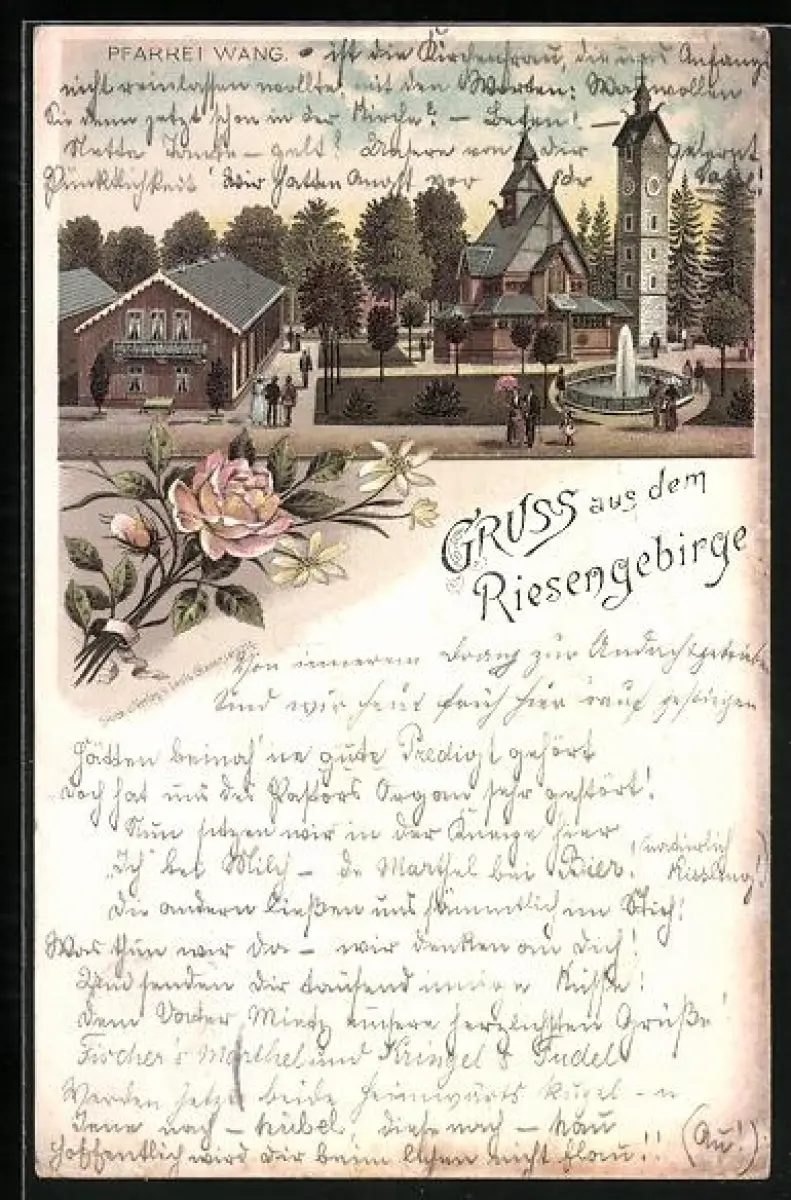 PFARREI WANG. ist die Kirchenfrau, die uns Anfangs
nicht reinlassen wollte, mit den Worten: Was wollen
Sie denn jetzt schon in der Kirche? – Beten! –
Nette Tante – gelt? Unsere von Dir gelernte
Pünktlichkeit! Wir hatten Angst vor
GRUSS aus dem
Riesengebirge
Von innerem Drang zur Andacht getrieben
Sind wir heut früh hier rauf gestiegen
Hätten beinah' 'ne gute Predigt gehört
Doch hat uns des Pastors Organ sehr gestört!
Nun sitzen wir in der Kneipe hier
"Ich" bei Milch – de Marthel bei Bier! (natürlich
Kissling!)
Die andern ließen uns sämmtlich im Stich!
Was thun wir da – wir denken an Dich!
Und senden Dir tausend innige Küsse!
Dem Vater Mietz unsere herzlichsten Grüße!
Fischer's Marthel und Kringel & Pudel
Werden jetzt beide heimwärts kugel-n
Jene nach – Kübel, diese nach – Kau
Hoffentlich wird Dir beim Lesen nicht flau!! (Au!)